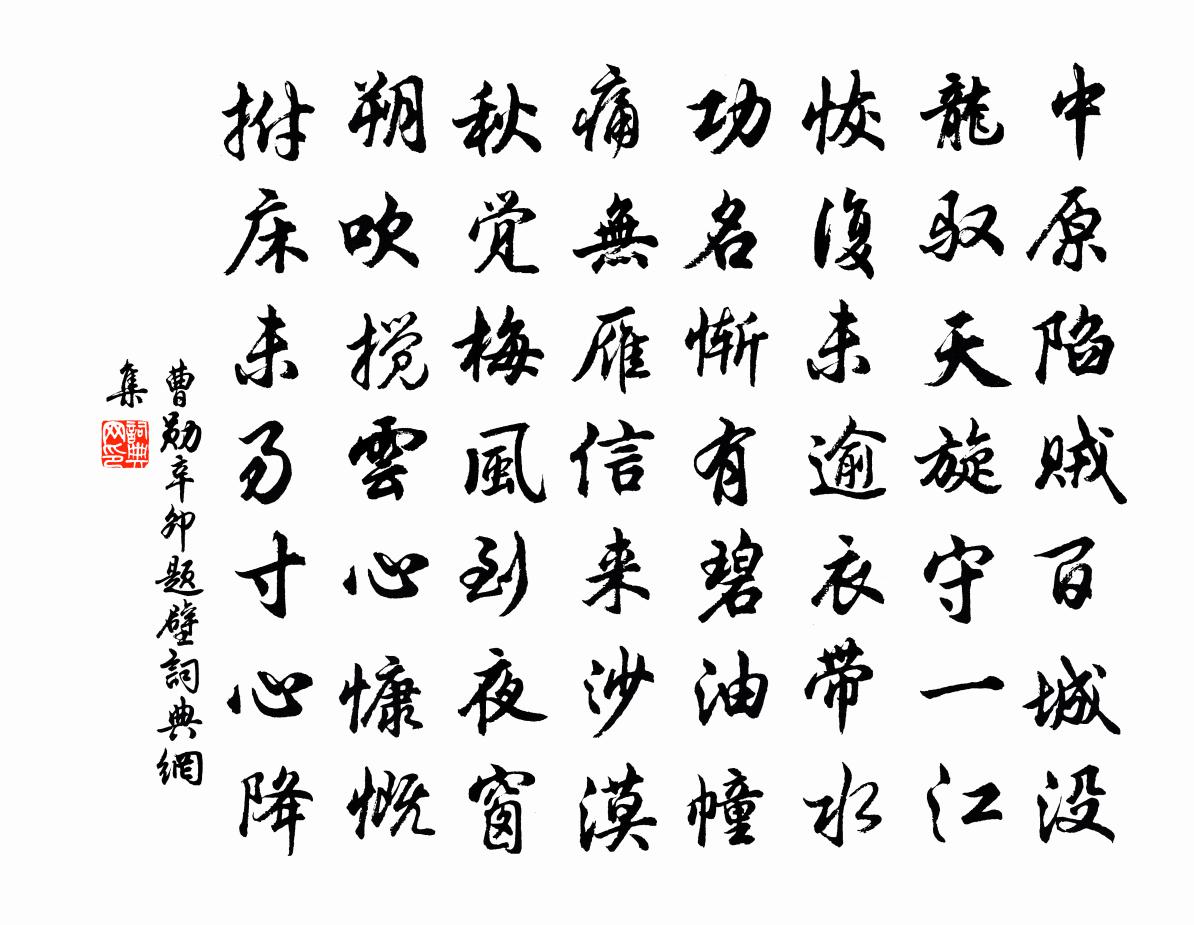 中原陷贼百城没
龍驭天旋守一江
恢復未逾衣带水
功名惭有碧油幢
痛無雁信来沙漠
秋觉梅風到夜窗
朔吹搅雲心慷慨
拊床未易寸心降
曹勋辛卯题壁詞典網
集
詞典
网印